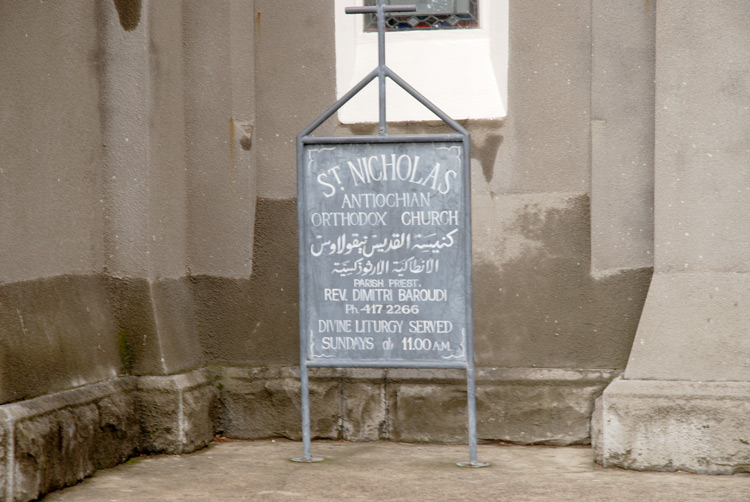 ST. NICHOLAS
ANTIOCHIAN
ORTHODOX CHURCH
كنيسة القديس نيقولاوس
الانطاكية الارثوذكسية
PARISH PREST.
REV. DIMITRI BAROUDI
Ph. 417 2266
DIVINE LITURGY SERVED
SUNDAYS at 11.00 A.M.